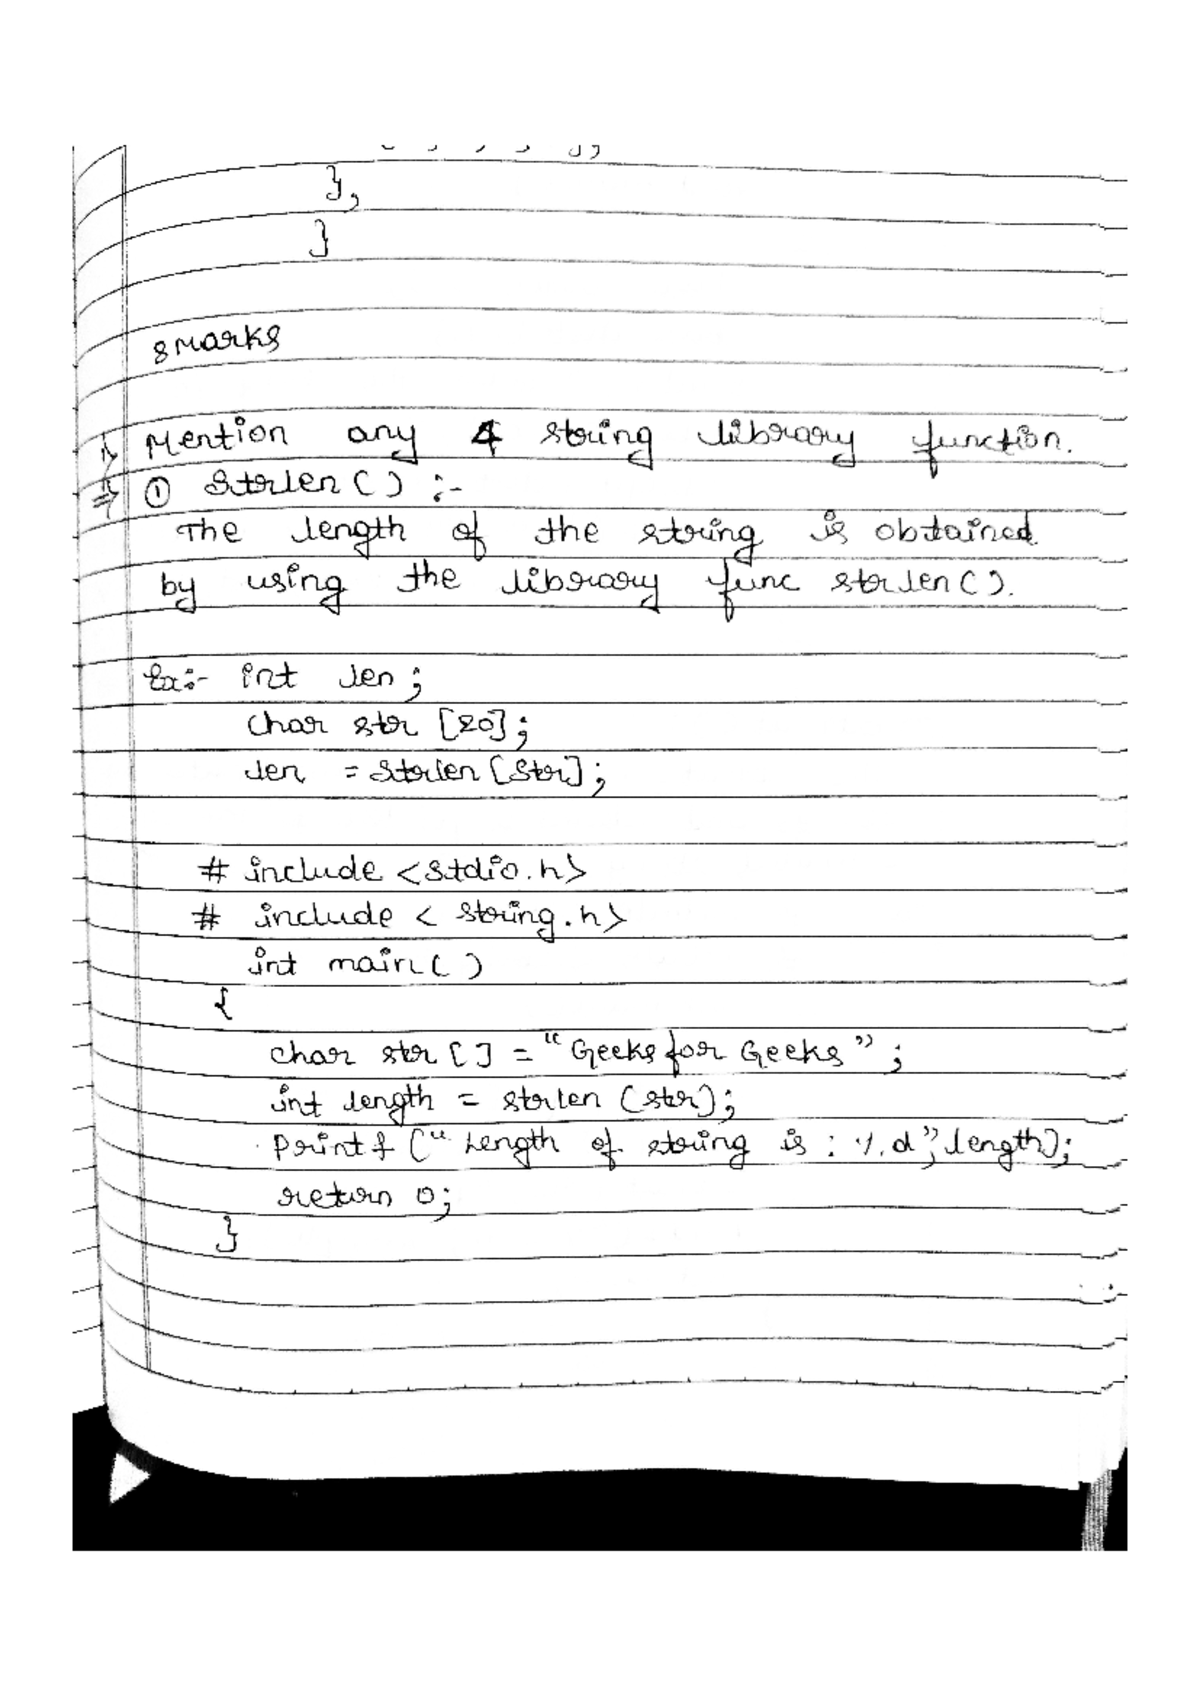 },
}
8 Marks
1) Mention any 4 string library function.
⇒ ① Strlen ( ) :-
The length of the string is obtained
by using the library func strlen ( ).
Ex:- int len ;
char str [20] ;
len = strlen [str] ;
# include <stdio.h>
# include < string.h>
int main ( )
{
char str [ ] = "Geeks for Geeks" ;
int length = strlen (str) ;
printf (" Length of string is : %d", length);
return 0;
}